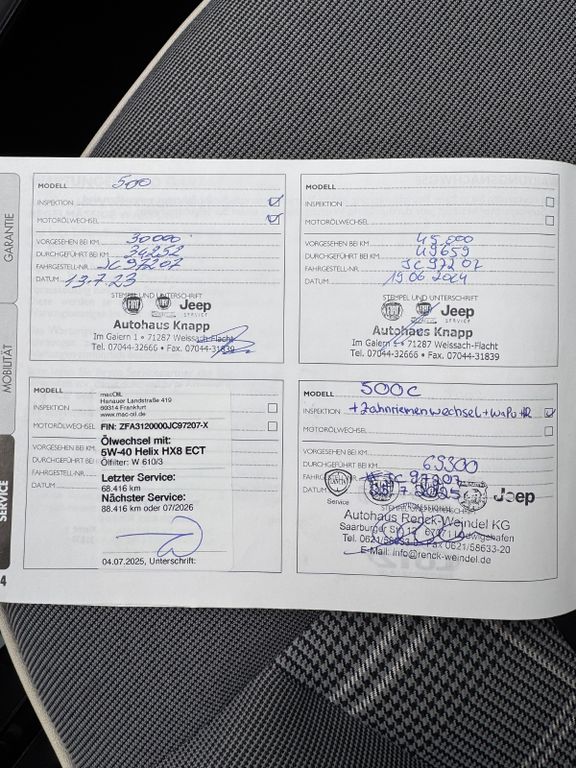 GARANTIE
MOBILITÄT
SERVICE
4
MODELL 500
INSPEKTION
MOTORÖLWECHSEL
VORGESEHEN BEI KM 30000
DURCHGEFÜHRT BEI KM 34252
FAHRGESTELL-NR. JC97207
DATUM 13.7.23
STEMPEL UND UNTERSCHRIFT
FIAT FIAT Jeep
SERVICE
Autohaus Knapp
Im Gaiern 1 • 71287 Weissach-Flacht
Tel. 07044-32666 • Fax. 07044-31839
MODELL
INSPEKTION
MOTORÖLWECHSEL
VORGESEHEN BEI KM 45000
DURCHGEFÜHRT BEI KM 49659
FAHRGESTELL-NR. JC97207
DATUM 19 06 2024
STEMPEL UND UNTERSCHRIFT
FIAT FIAT Jeep
SERVICE
Autohaus Knapp
Im Gaiern 1 • 71287 Weissach-Flacht
Tel. 07044-32666 • Fax. 07044-31839
MODELL
INSPEKTION
MOTORÖLWECHSEL
VORGESEHEN BEI KM
DURCHGEFÜHRT BEI
FAHRGESTELL-NR.
DATUM
macOIL
Hanauer Landstraße 419
60314 Frankfurt
www.mac-oil.de
FIN: ZFA3120000JC97207-X
Ölwechsel mit:
5W-40 Helix HX8 ECT
Ölfilter: W 610/3
Letzter Service:
68.416 km
Nächster Service:
88.416 km oder 07/2026
04.07.2025, Unterschrift:
MODELL 500C
INSPEKTION +Zahnriemenwechsel+WaPu
MOTORÖLWECHSEL
VORGESEHEN BEI KM
DURCHGEFÜHRT BEI KM 69300
FAHRGESTELL-NR. JC97207
DATUM 7.2025
LANCIA Jeep
Service
Autohaus Renck-Weindel KG
Saarburger Str. 67071 Ludwigshafen
Tel. 0621/58633-0 Fax 0621/58633-20
E-Mail: info@renck-weindel.de